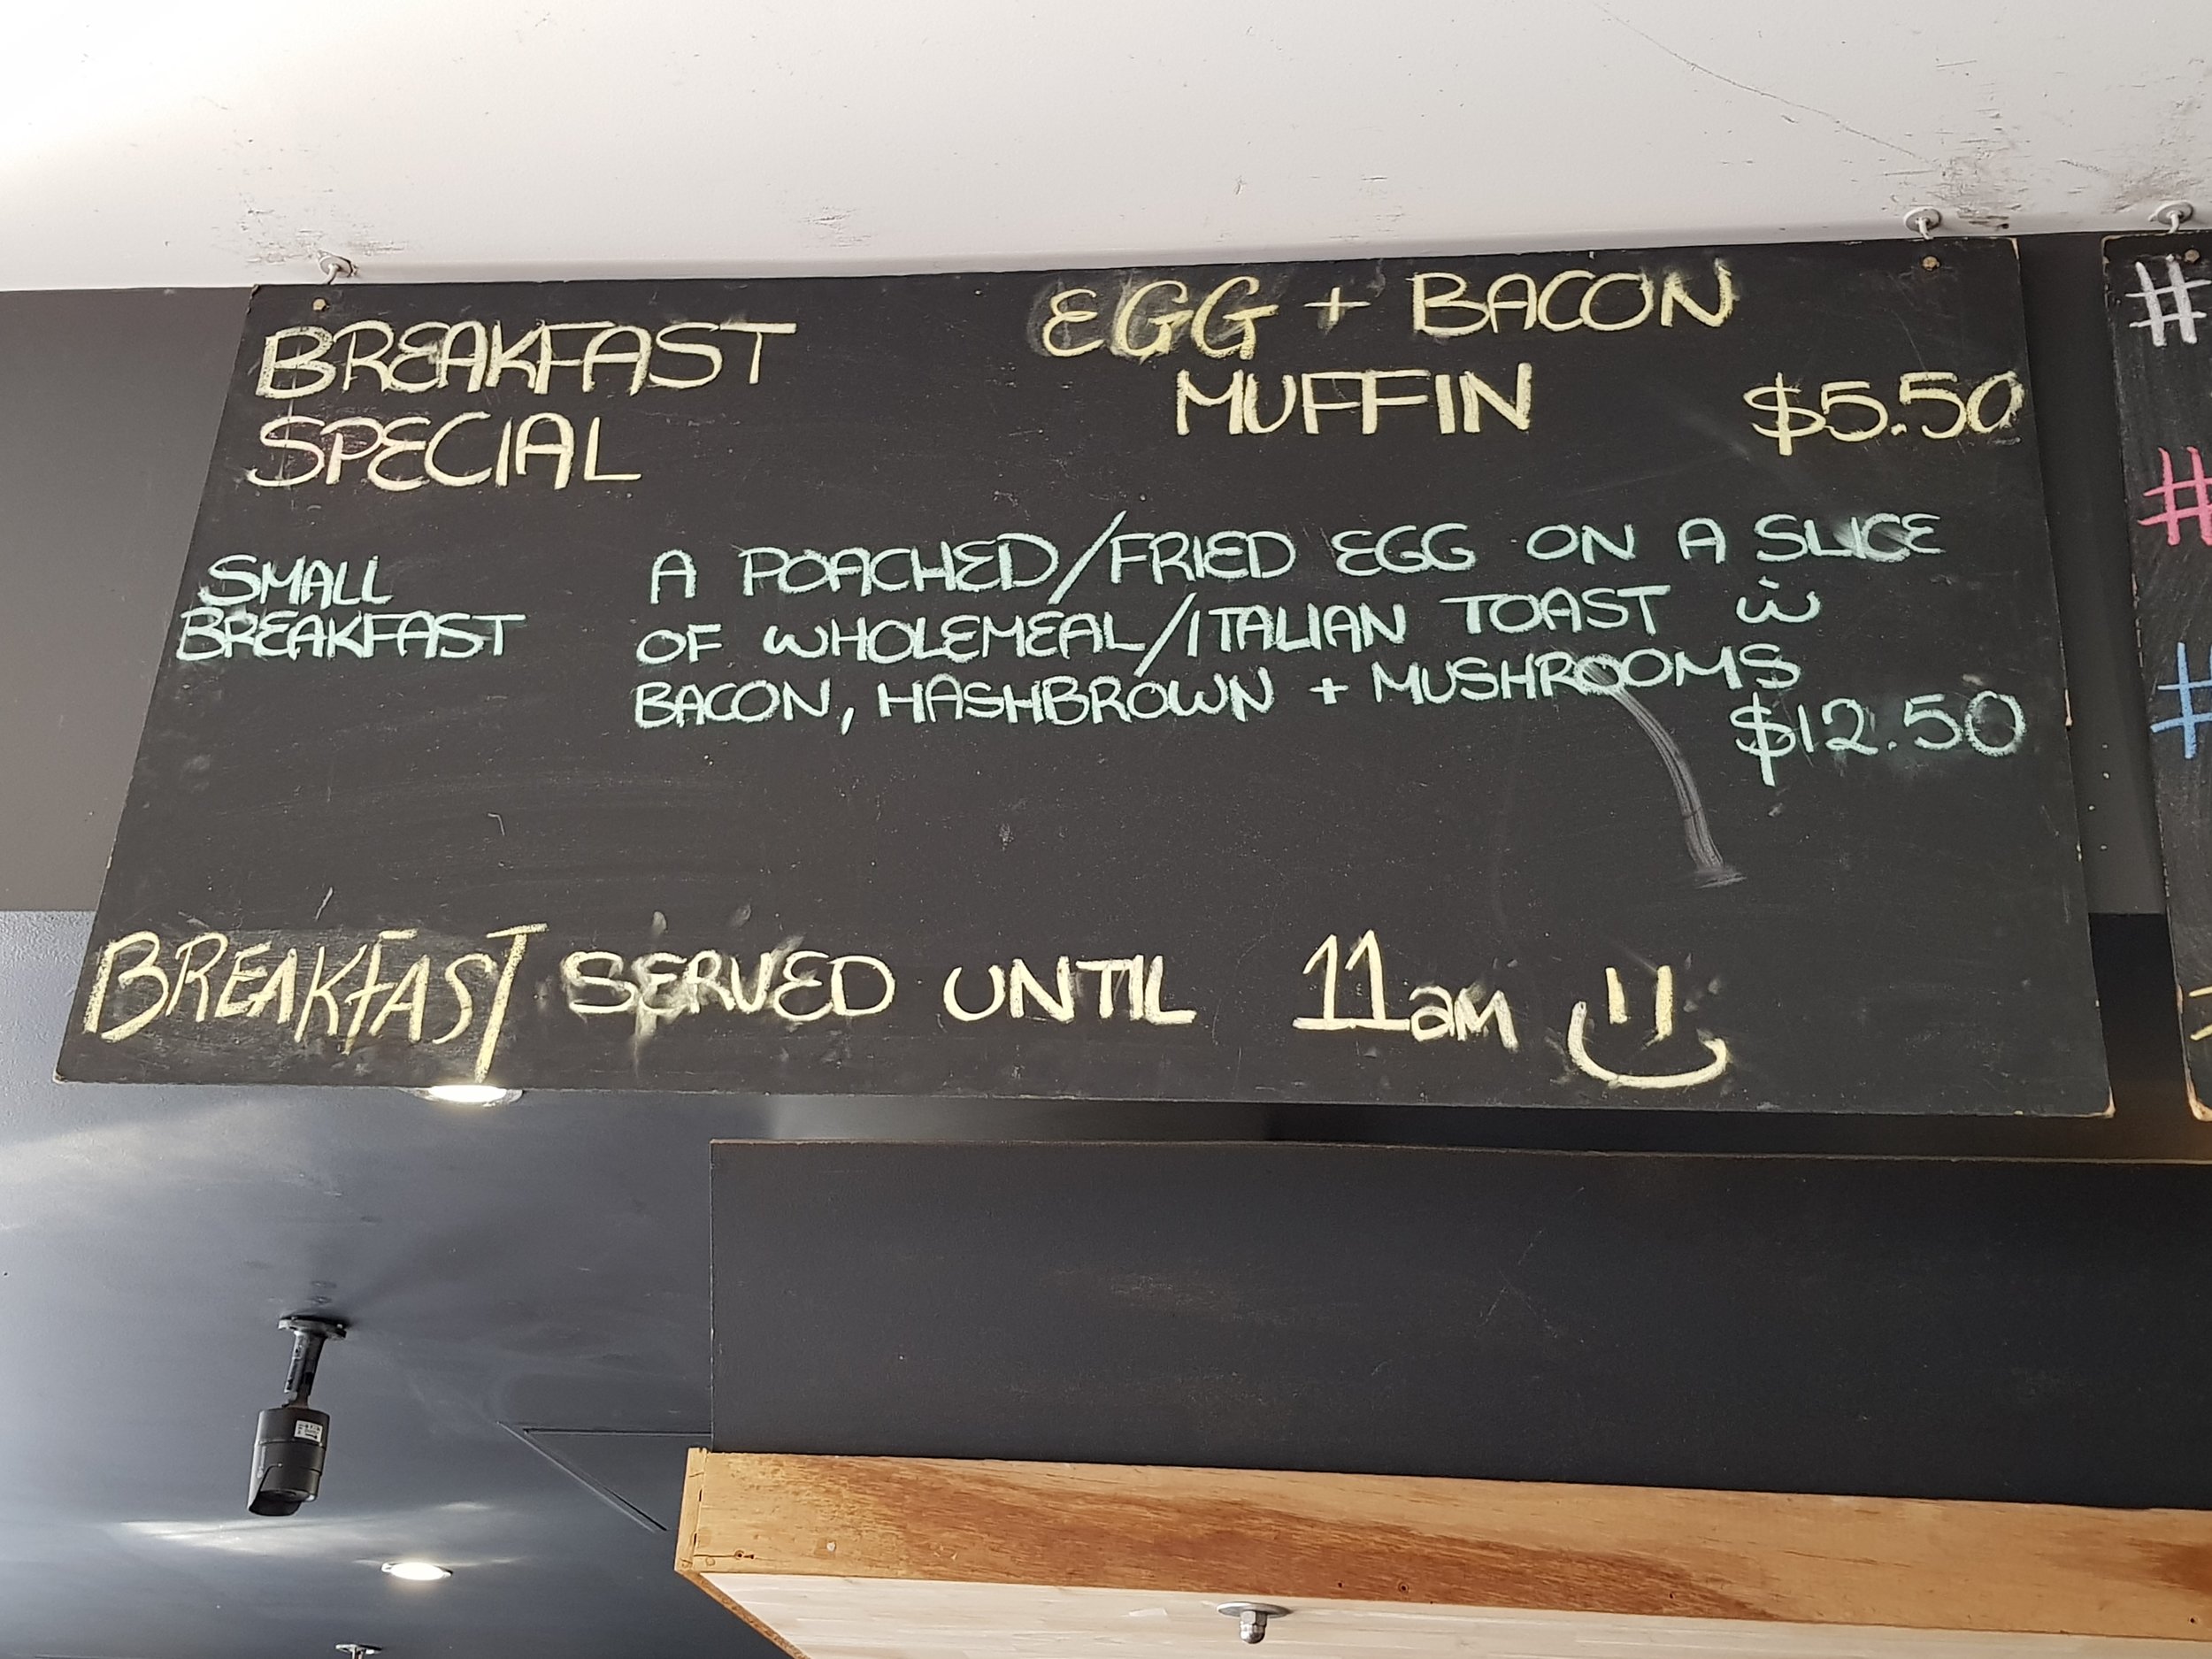 BREAKFAST
SPECIAL
EGG + BACON
MUFFIN $5.50
SMALL
BREAKFAST
A POACHED/FRIED EGG ON A SLICE
OF WHOLEMEAL/ITALIAN TOAST ẇ
BACON, HASHBROWN + MUSHROOMS
$12.50
BREAKFAST SERVED UNTIL 11am
#
#
#